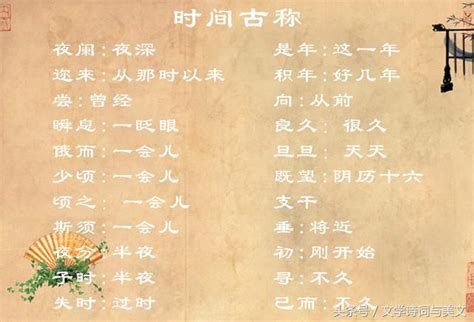 时间古称
夜阑:夜深
迩来:从那时以来
尝:曾经
瞬息:一眨眼
俄而:一会儿
少顷:一会儿
顷之: 一会儿
斯须:一会儿
夜分:半夜
子时:半夜
失时:过时
是年:这一年
积年:好几年
向:从前
良久: 很久
旦旦: 天天
既望:阴历十六
支干
垂:将近
初:刚开始
寻:不久
已而:不久
头条号/文学诗词与美文